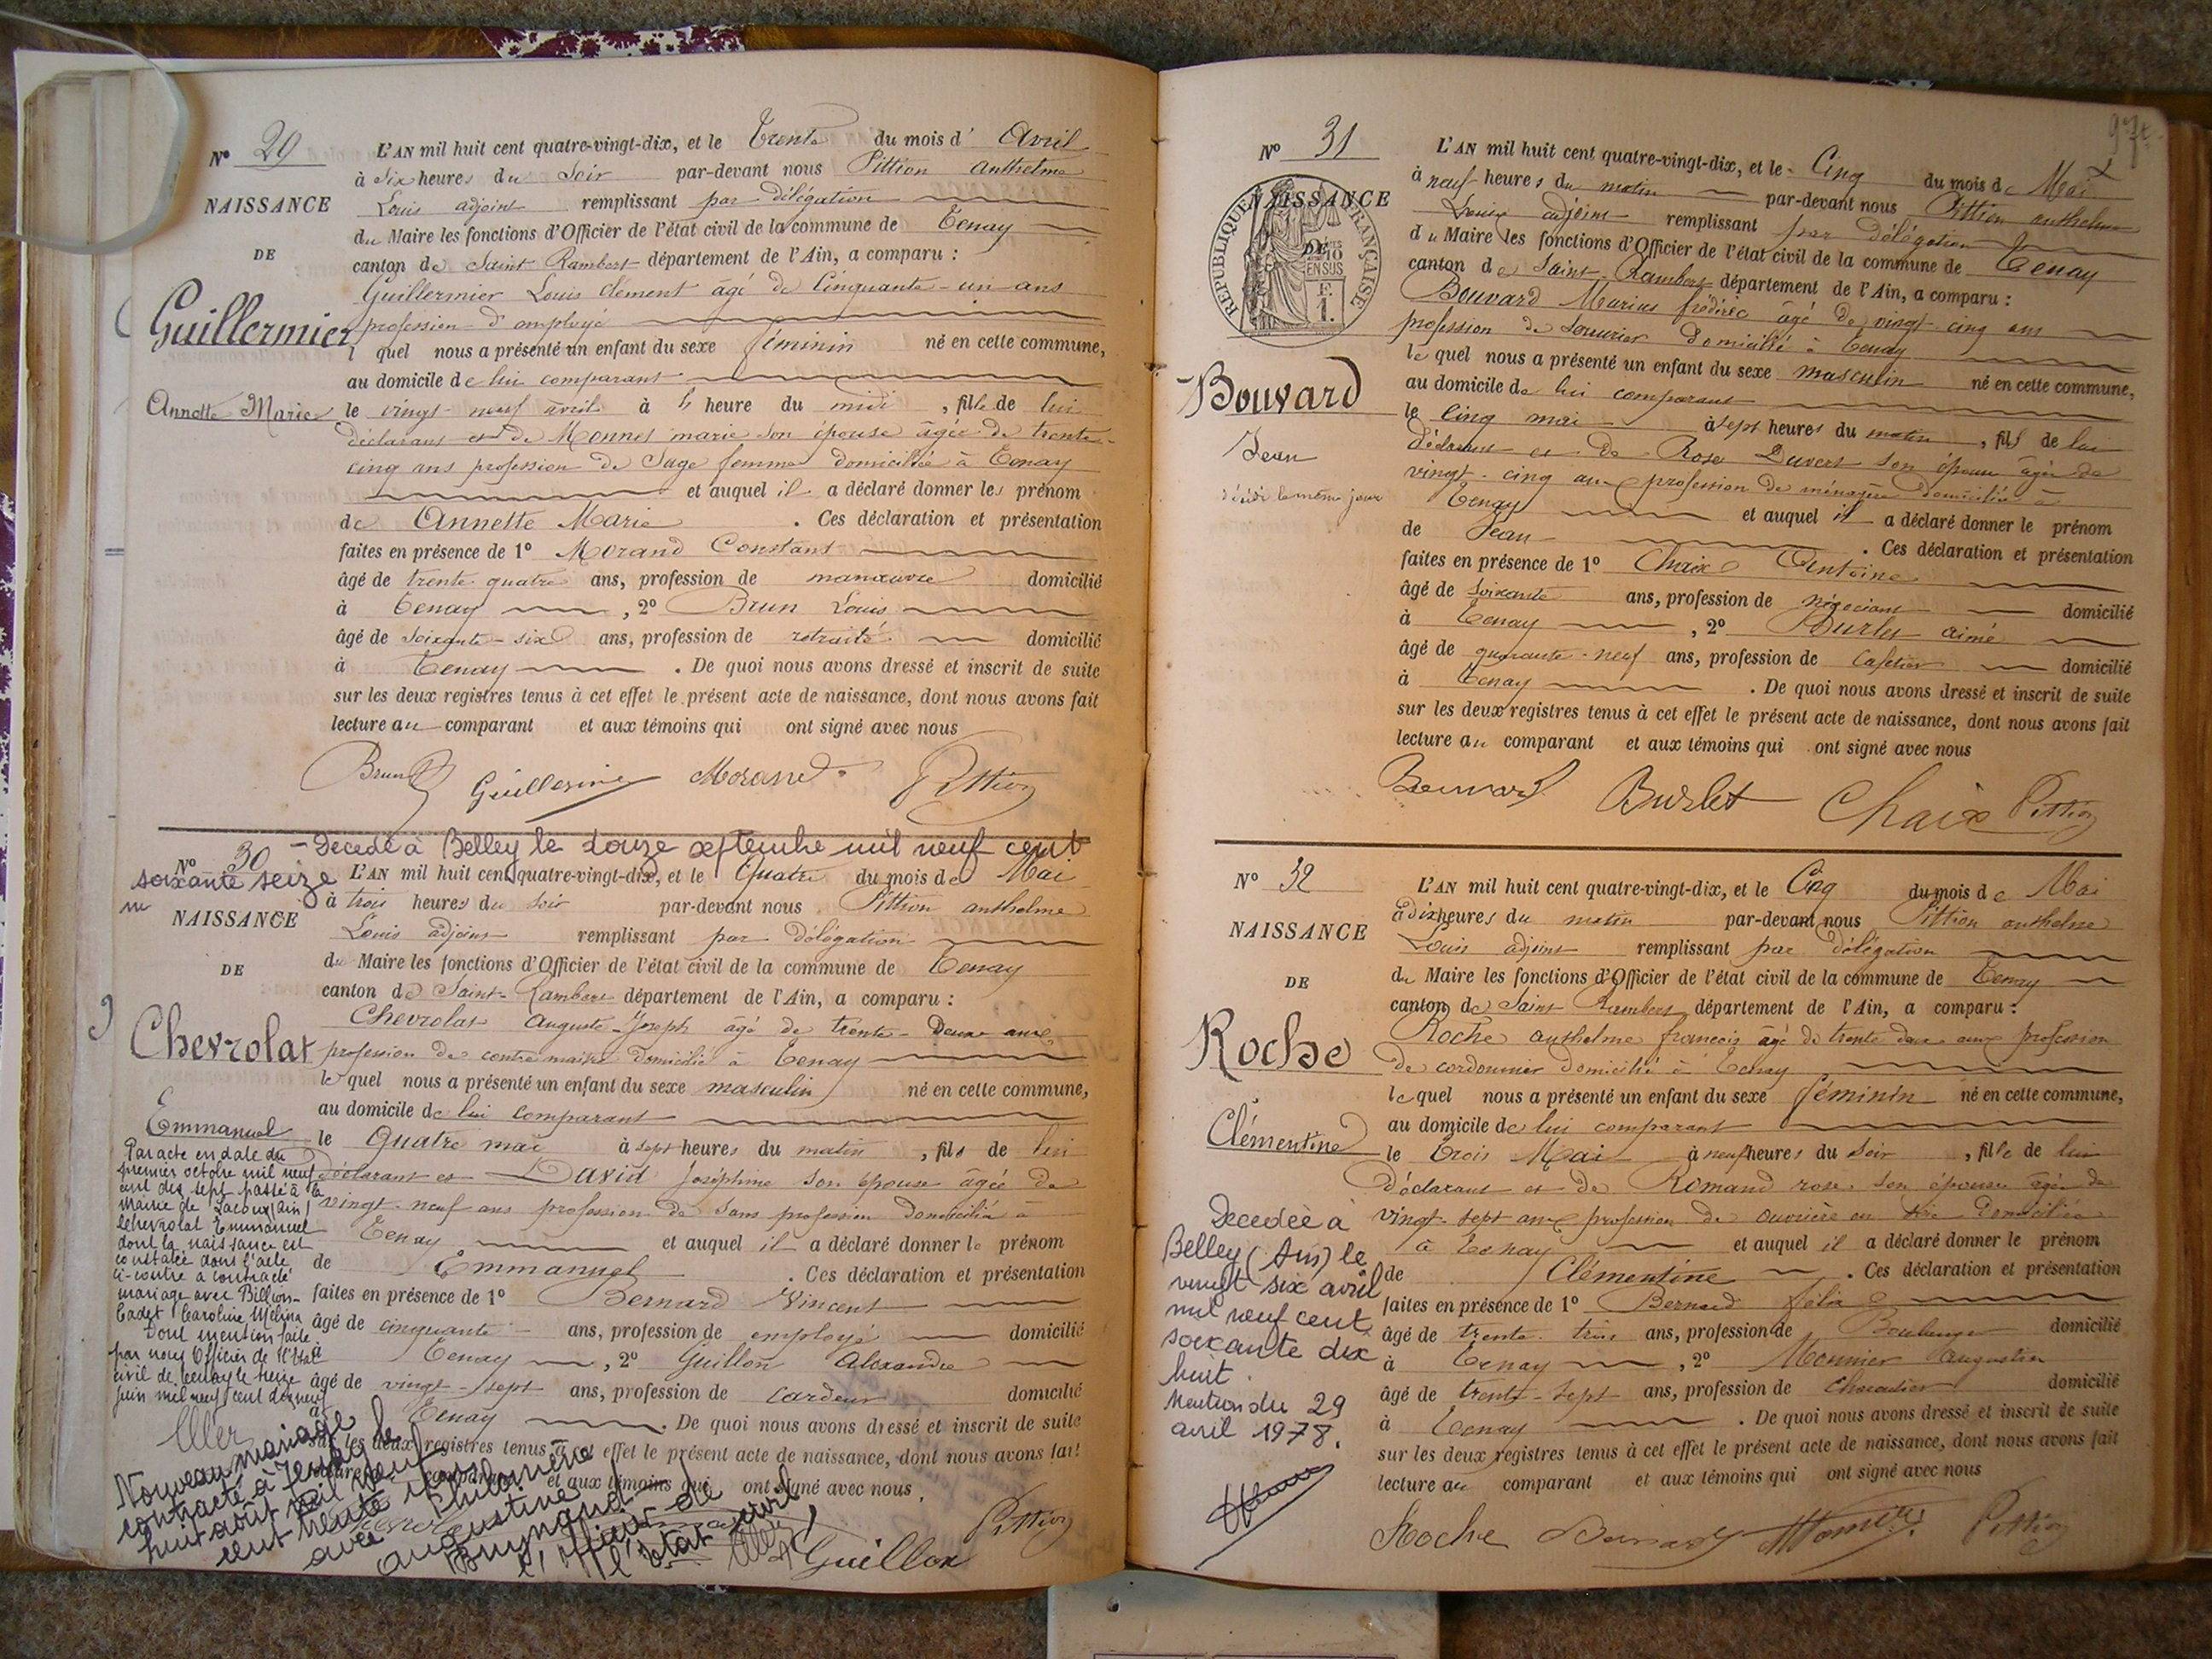 Nº 29
NAISSANCE
DE
Guillermier
Annette Marie
L'AN mil huit cent quatre-vingt-dix, et le Trente du mois d' Avril
à Six heures du Soir par-devant nous Pittion anthelme
Louis adjoint remplissant par délégation
du Maire les fonctions d'Officier de l'état civil de la commune de Tenay
canton de Saint Rambert département de l'Ain, a comparu :
Guillermier Louis clément agé de Cinquante-un ans
profession d'employé
l quel nous a présenté un enfant du sexe féminin né en cette commune,
au domicile de lui comparant
le vingt-neuf avril à heure du midi , fille de lui
déclarant et de Monnet marie son épouse âgée de trente-
cinq ans profession de Sage femme domiciliée à Tenay
et auquel il a déclaré donner les prénom
de Annette Marie . Ces déclaration et présentation
faites en présence de 1º Morand Constant
âgé de trente quatre ans, profession de manœuvre domicilié
à Tenay , 2º Brun Louis
âgé de soixante-six ans, profession de retraité domicilié
à Tenay . De quoi nous avons dressé et inscrit de suite
sur les deux registres tenus à cet effet le présent acte de naissance, dont nous avons fait
lecture au comparant et aux témoins qui ont signé avec nous
Brun Guillermier Morand Pittion
Nº 30
- Decedé à Belley le douze septembre mil neuf cent
soixante seize
NAISSANCE
DE
Chevrolat
Emmanuel
Par acte en date du
premier octobre mil neuf
cent dix sept passé à la
Mairie de Lacoux (Ain)
Chevrolat Emmanuel
dont la naissance est
constatée dans l'acte
ci-contre a contracté
mariage avec Billion-
Cadet Caroline Mélina
Dont mention faite
par nous Officier de l'état
civil de Tenay le treize
juin mil neuf cent dix neuf
Nouveau mariage
contracté à Tenay le
huit août mil neuf
cent trente
avec Philomène
augustine
Brunand
L'officier de
l'état civil
L'AN mil huit cent quatre-vingt-dix, et le Quatre du mois de Mai
à trois heures du soir par-devant nous Pittion anthelme
Louis adjoint remplissant par délégation
du Maire les fonctions d'Officier de l'état civil de la commune de Tenay
canton de Saint-Rambert département de l'Ain, a comparu :
Chevrolat Auguste-Joseph âgé de trente-Deux ans
profession de contre maitre Domicilié à Tenay
le quel nous a présenté un enfant du sexe masculin né en cette commune,
au domicile de lui comparant
le Quatre mai à sept heures du matin , fils de lui
déclarant et David Joséphine son épouse âgée de
vingt-neuf ans profession de Sans profession Domiciliée à
Tenay et auquel il a déclaré donner le prénom
de Emmanuel . Ces déclaration et présentation
faites en présence de 1º Bernard Vincent
âgé de cinquante ans, profession de employé domicilié
à Tenay , 2º Guillon Alexandre
âgé de vingt-sept ans, profession de cardeur domicilié
à Tenay . De quoi nous avons dressé et inscrit de suite
sur les deux registres tenus à cet effet le présent acte de naissance, dont nous avons fait
lecture et aux témoins qui ont signé avec nous
Guillon Pittion
97
Nº 31
NAISSANCE
DE
RÉPUBLIQUE FRANÇAISE
Bouvard
Jean
décédé le même jour
L'AN mil huit cent quatre-vingt-dix, et le Cinq du mois de Mai
à neuf heures du matin par-devant nous Pittion anthelme
Louis adjoint remplissant par délégation
du Maire les fonctions d'Officier de l'état civil de la commune de Tenay
canton de Saint-Rambert département de l'Ain, a comparu :
Bouvard Marius frédéric âgé de vingt-cinq ans
profession de Serrurier Domicilié à Tenay
le quel nous a présenté un enfant du sexe masculin né en cette commune,
au domicile de lui comparant
le Cinq mai à sept heures du matin , fils de lui
déclarant et de Rose Duvert son épouse âgée de
vingt-cinq ans profession de ménagère domiciliée à
Tenay et auquel il a déclaré donner le prénom
de Jean . Ces déclaration et présentation
faites en présence de 1º Chaix Antoine
âgé de soixante ans, profession de négociant domicilié
à Tenay , 2º Burlet aimé
âgé de quarante-neuf ans, profession de Cafetier domicilié
à Tenay . De quoi nous avons dressé et inscrit de suite
sur les deux registres tenus à cet effet le présent acte de naissance, dont nous avons fait
lecture au comparant et aux témoins qui ont signé avec nous
Bouvard Burlet Chaix Pittion
Nº 32
NAISSANCE
DE
Roche
Clémentine
Decedée à
Belley (Ain) le
vingt six avril
mil neuf cent
soixante dix
huit.
Mention du 29
avril 1978.
L'AN mil huit cent quatre-vingt-dix, et le Cinq du mois de Mai
à dix heures du matin par-devant nous Pittion anthelme
Louis adjoint remplissant par délégation
du Maire les fonctions d'Officier de l'état civil de la commune de Tenay
canton de Saint Rambert département de l'Ain, a comparu :
Roche anthelme françois âgé de trente deux ans profession
de cordonnier Domicilié à Tenay
le quel nous a présenté un enfant du sexe féminin né en cette commune,
au domicile de lui comparant
le trois Mai à neuf heures du Soir , fille de lui
Déclarant et de Romand rose son épouse âgée de
vingt-sept ans profession de ouvrière en soie Domiciliée
à Tenay et auquel il a déclaré donner le prénom
de Clémentine . Ces déclaration et présentation
faites en présence de 1º Bernard félix
âgé de trente-trois ans, profession de Boulanger domicilié
à Tenay , 2º Monnier Augustin
âgé de trente-sept ans, profession de Charcutier domicilié
à Tenay . De quoi nous avons dressé et inscrit de suite
sur les deux registres tenus à cet effet le présent acte de naissance, dont nous avons fait
lecture au comparant et aux témoins qui ont signé avec nous
Roche Bernard Monnier Pittion